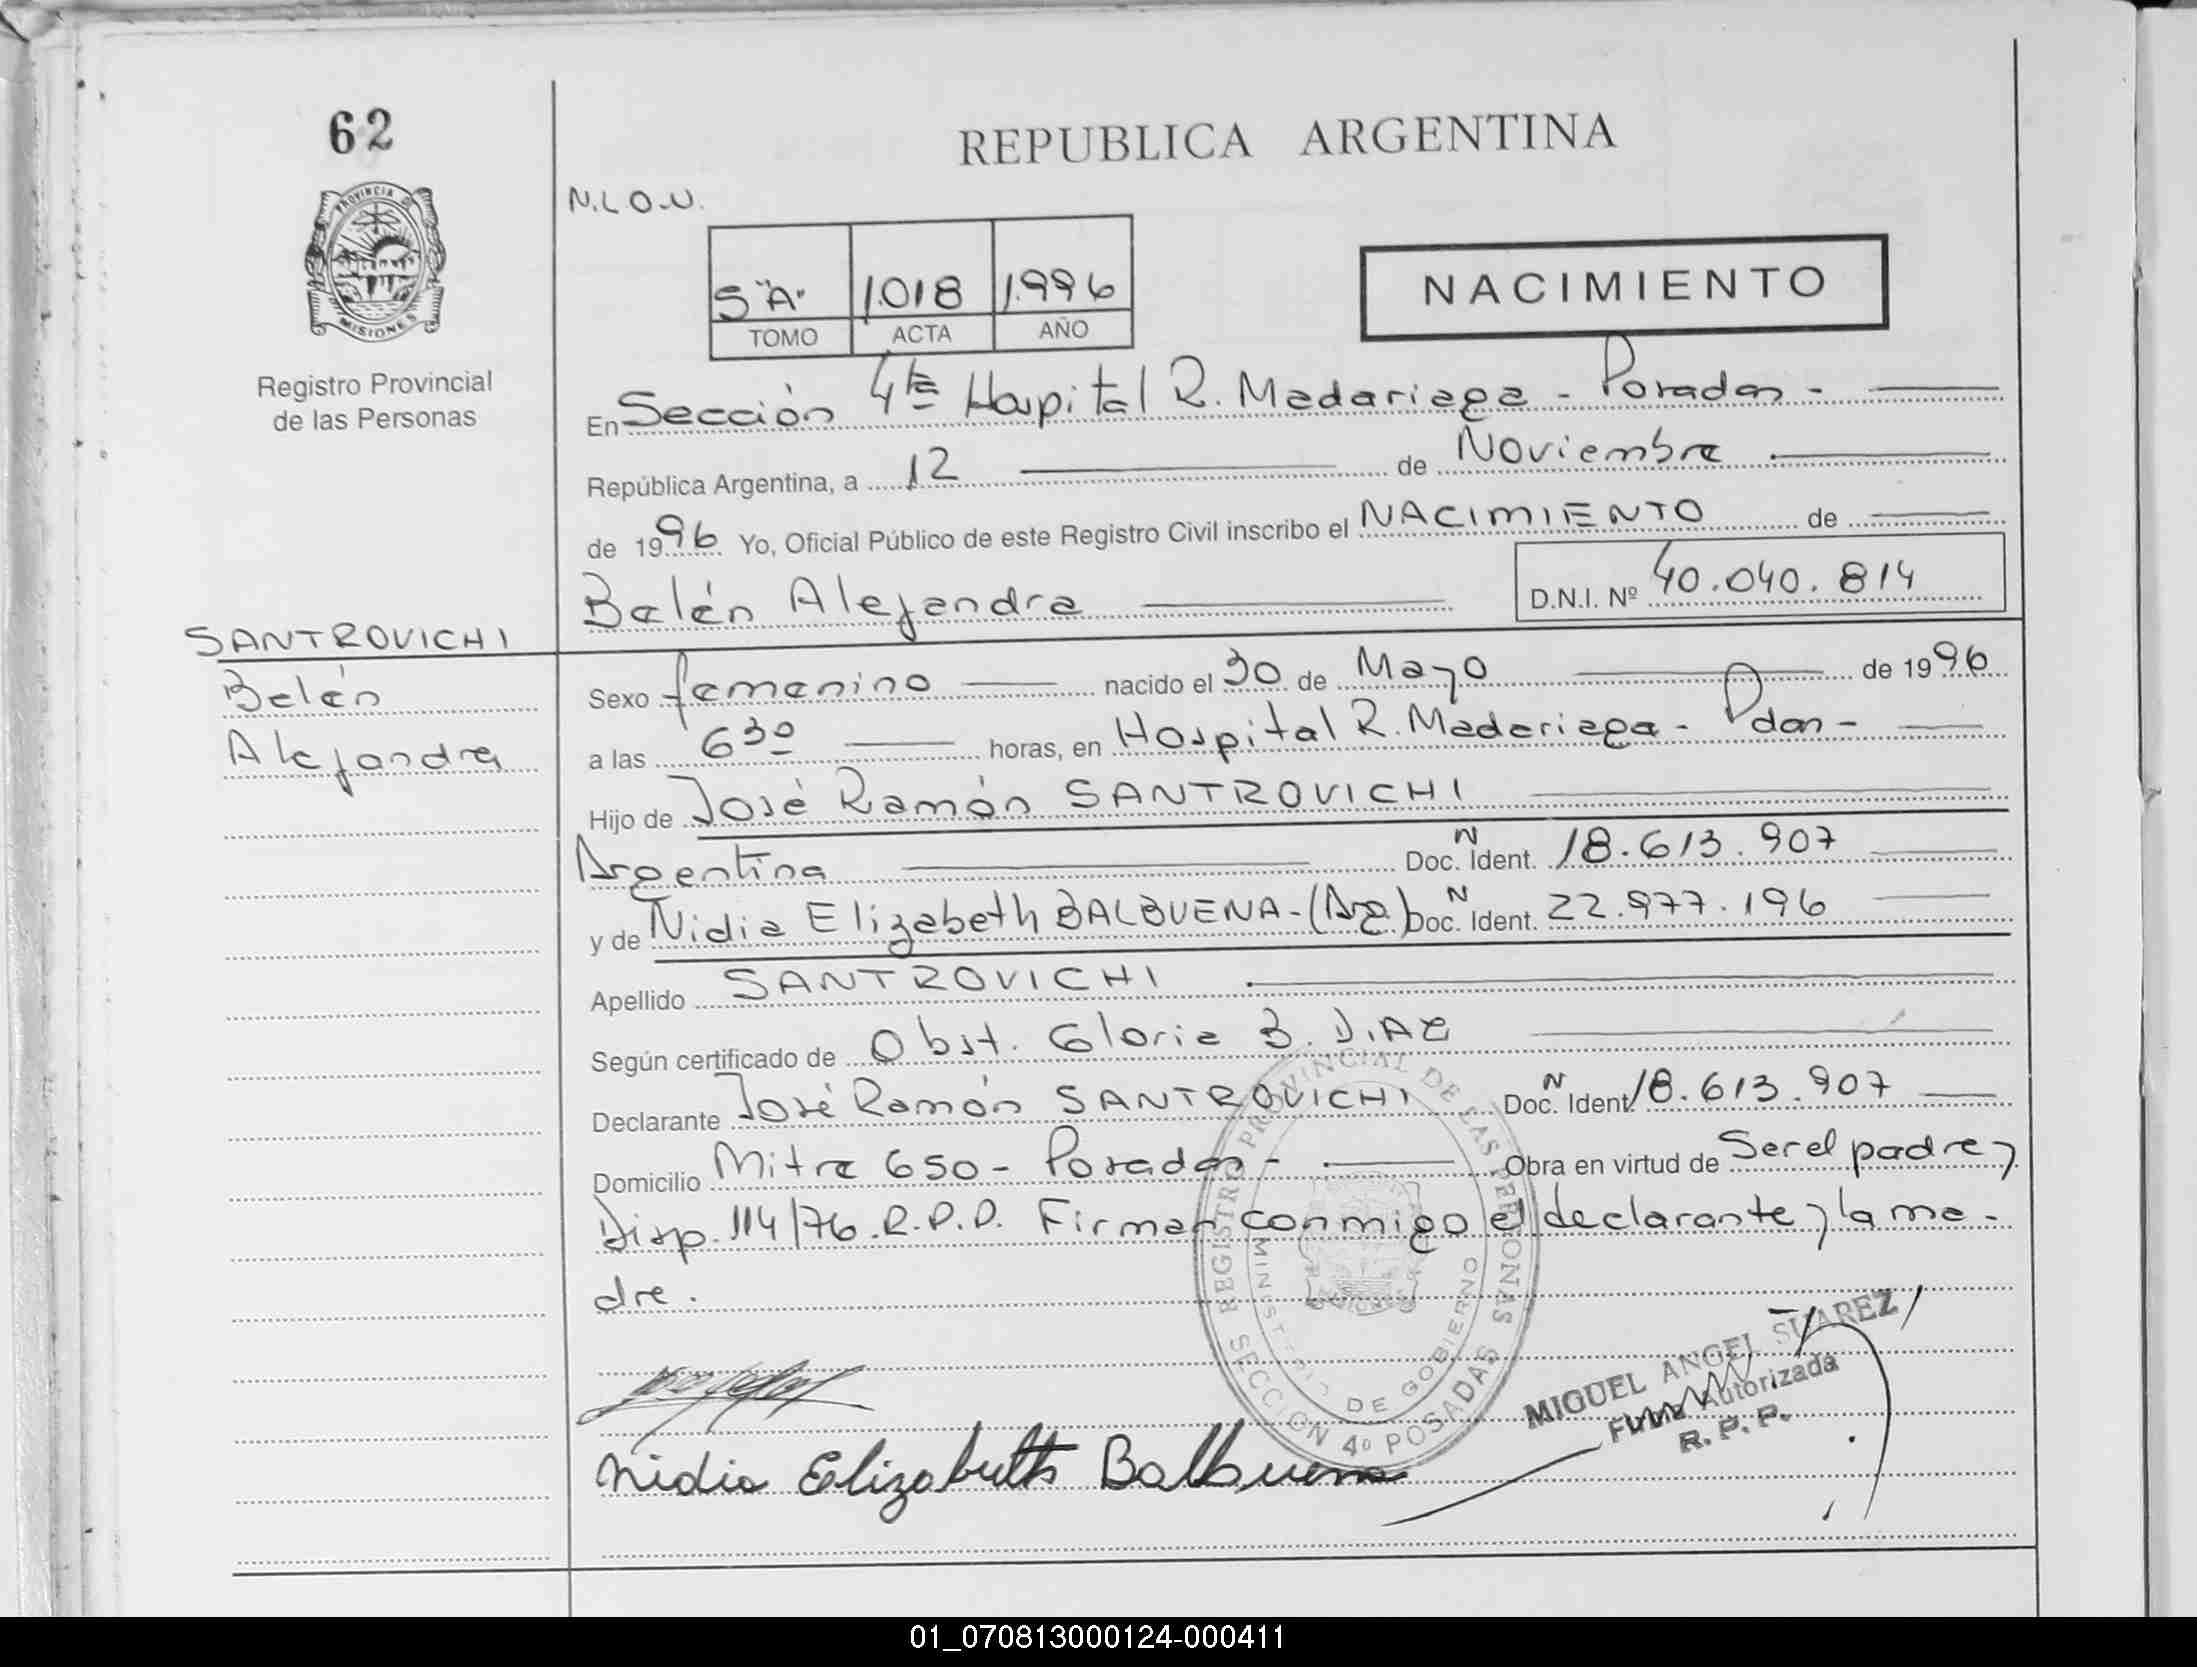 62
PROVINCIA DE
MISIONES
Registro Provincial
de las Personas
REPUBLICA ARGENTINA
N.L.O.U.
5"A" 1.018 1.996
TOMO ACTA AÑO
NACIMIENTO
En Sección 4ta Hospital R. Madariaga - Posadas -
República Argentina, a 12 de Noviembre
de 1996 Yo, Oficial Público de este Registro Civil inscribo el NACIMIENTO de
Belén Alejandra D.N.I. Nº 40.040.814
SANTROVICHI
Belén
Alejandra
Sexo femenino nacido el 30 de Mayo de 1996
a las 6 30 horas, en Hospital R. Madariaga - Pdas -
Hijo de José Ramón SANTROVICHI
Argentina Doc. N Ident. 18.613.907
y de Nidia Elizabeth BALBUENA - (Arg.) Doc. N Ident. 22.977.196
Apellido SANTROVICHI
Según certificado de Obst. Gloria B. DIAZ
Declarante José Ramón SANTROVICHI Doc. N Ident. 18.613.907
Domicilio Mitre 650 - Posadas - Obra en virtud de Ser el padre y
Disp. 114/76. R.P.P. Firman conmigo el declarante y la ma-
dre.
REGISTRO PROVINCIAL DE LAS PERSONAS
MINISTERIO DE GOBIERNO
SECCION 4º POSADAS
MIGUEL ANGEL SUAREZ
Firma Autorizada
R. P. P.
Nidia Elizabeth Balbuena
01_070813000124-000411